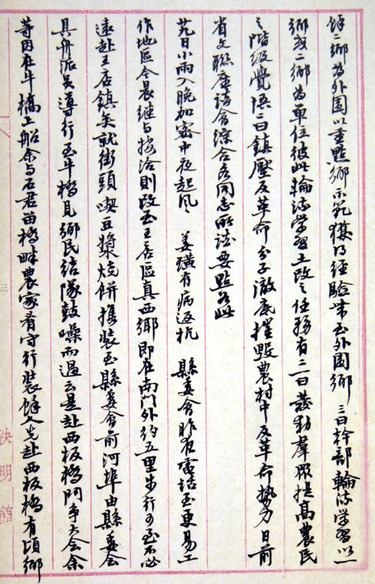 餘二鄉為外圍以重點鄉示範獲得經驗帶至外圍鄉 三曰幹部輪流學習以一
鄉或二鄉為單位彼此輪流學習土改之任務有二一曰發動羣眾提高農民
之階級覺悟二曰鎮壓反革命分子澈底摧毀農村中反革命勢力日前
省文聯座談會綜合各同志所談要點如此
廿九日小雨入晚加密中夜起風 姜璜有病返杭 縣委會昨夜電話至更易工
作地區今晨繼與接洽則改至王店區真西鄉即在南門外約五里步行可至不必
遠赴王店鎮矣就街頭喫豆漿燒餅携裝至縣委會前河埠由縣委會
具舟派員導行至斗橋見鄉民結隊鼓噪而過云是赴西板橋鬥爭大會余
等因在斗橋上船余與石君苗橋畔農家看守行裝餘人先赴西板橋有頃鄉
三
決明館